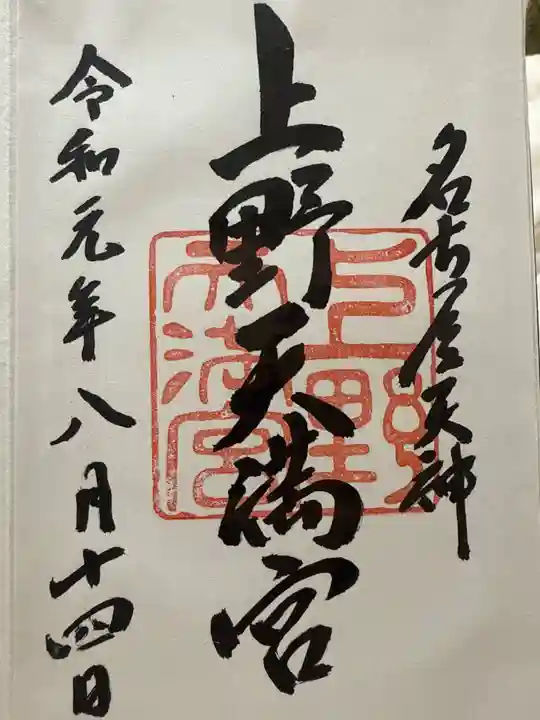 名古屋天神
上野天満宮
上野
天満宮
令和元年八月十四日